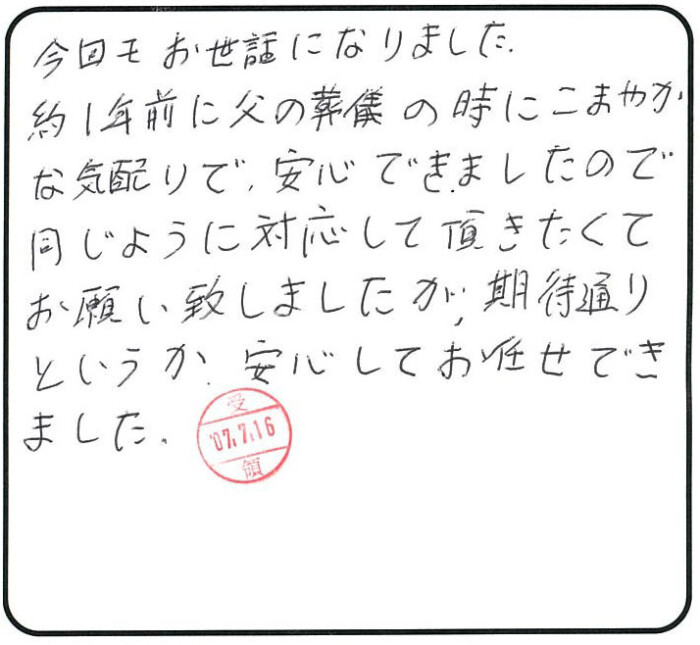 今回もお世話になりました.
約1年前に父の葬儀の時にこまやか
な気配りで、安心できましたので
同じように対応して頂きたくて
お願い致しましたが、期待通り
というか、安心してお任せでき
ました。
受
'07.7.16
領